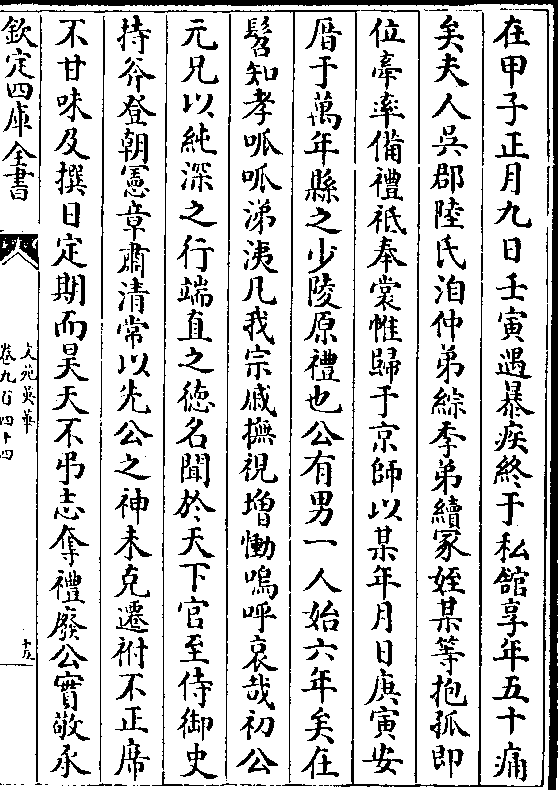 在甲子正月九日壬寅遇暴疾終于私館享年五十痛
矣夫人吳郡陸氏洎仲弟綜季弟續冢姪某等抱孤即
位牽率備禮祇奉裳帷歸于京師以某年月日庚寅安
厝于萬年縣之少陵原禮也公有男一人始六年矣在
髫知孝呱呱涕洟凡我宗戚撫視增慟嗚呼哀哉初公
元兄以純深之行端直之德名聞於天下官至侍御史
持斧登朝憲章肅清常以先公之神未克遷祔不正席
不甘味及撰日定期而昊天不弔志奪禮廢公實敬承
欽定四庫全書
文苑英華
卷九百四十四
十五